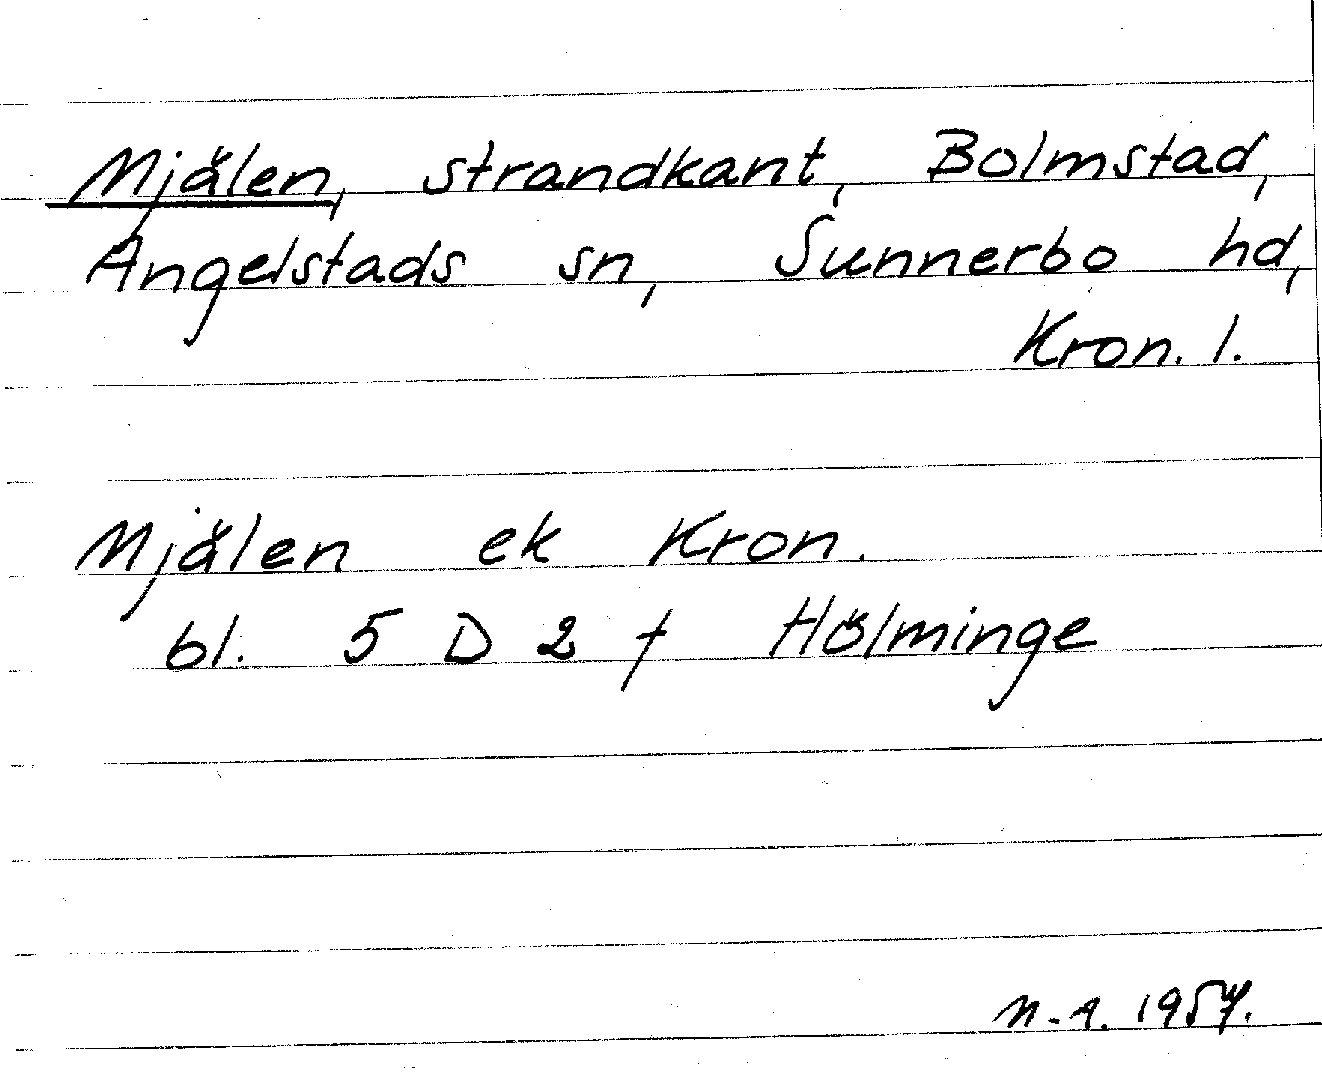 Mjälen, strandkant, Bolmstad,
Angelstads sn, Sunnerbo hd,
Kron. l.
Mjälen ek Kron.
bl. 5 D 2 f Hölminge
n-a. 1957.